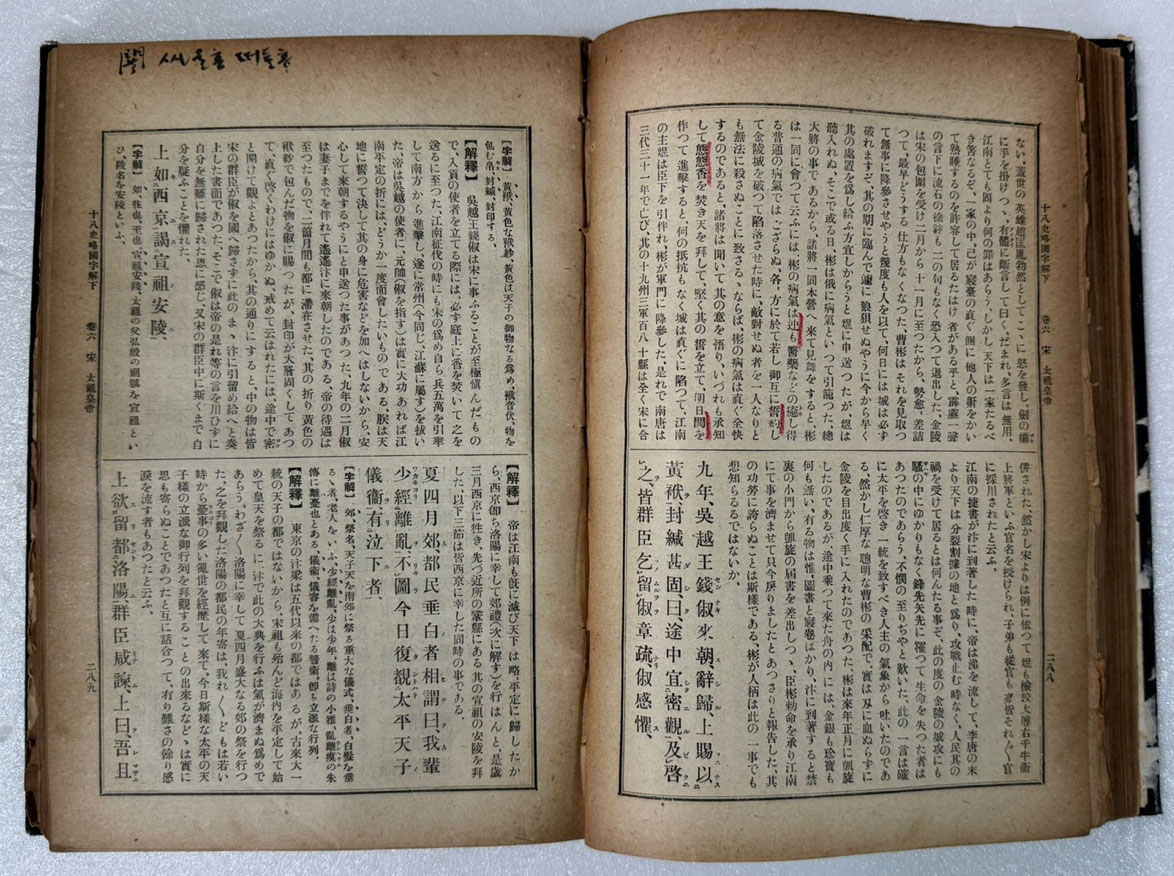 十八史略國字解下　卷六　宋　太祖皇帝
二八八
ない、蓋世の英雄趙匡胤勃然としてこゝに怒を發し、劍の欛
に手を掛けつゝ、有體に斷言して曰く、だまれ、多言は無用、
江南とても固より何の罪はあらう、しかし天下は一家たるべ
き害なるぞ、一家の中、己が寢臺の直ぐ側に他人の鼾をかい
て熟睡するのを許容して居るたはけ者がある乎と、霹靂一聲
の言下に流石の徐鉉も二の句もなく恐入つて退出した、金陵
は宋の包圍を受け二月から十一月に至つたから、勢愈〻差詰
つて、最早どうする仕方もなくなつた、曹彬はそれを見取つ
て無事に降參させやうと幾度も人を以て、何日には城は必ず
破れますぞ、其の期に臨んで遽に狼狽せぬやうに今から早く
其の處置を爲し給ふ方宜しからうと煜に申送つたが、煜は
聽入れぬ、そこで或る日、彬は俄に病氣といつて引籠つた、總
大將の事であるから、諸將一同本營へ來て見舞をすると、彬
は一同に會つて云ふには、彬の病氣は迚も醫藥などの癒し得
る普通の病氣ではござらぬ、各〻方に於て若し御互に誓約し
て金陵城を破つて陷落させた時に、敵對せぬ者を一人なりと
も無法に殺さぬことに致さるゝならば、彬の病氣は直ぐ全快
するのであると、諸將は聞いて其の意を悟り、いづれも承知
して態態香を焚き天を拜して、堅く其の誓を立て、明日間を
作つて進擊すると何の抵抗もなく城は直ぐに陷つて、江南
の主煜は臣下を引伴れ、彬が軍門に降參した、是れで南唐は
三代三十一年で亡び、其の十九州三軍百八十縣は全く宋に合
併された、然かし宋よりは例に依つて煜も檢校太傅右千牛衞
上將軍といふ官名を授けられ、子弟も從官も亦皆それ〴〵官
に採用されたと云ふ、
江南の捷書が汴に到著した時に、帝は涕を流して、李唐の末
より天下は分裂割據の地と爲り、攻戰止む時なく、人民其の
禍を受けて居るとは何んたる事ぞ、此の度の金陵の城攻にも
騷の中にゆかりもなく鋒先矢先に罹つて生命を失つた者は
あつたのであらう、不憫の至りぢやと歎いた、此の一言は確
に太平を啓き一統を致すべき人主の氣象から吐いたのであ
る、然かし仁厚な聰明な曹彬の采配で、實は刄に血ぬらずに
金陵を目出度く手に入れたのであつた、彬は來年正月に凱旋
したのであるが、途中乘つて來た舟の內には、金銀も珍寶も
何も無い、有る物は惟〻圖書と寢卷ばかり、汴に到著すると禁
裏の小門から凱旋の屆書を差出しつゝ、臣彬勅命を承り江南
にて事を濟ませて只今戾りましたとあつさりと報告した、其
の功勞に誇らぬことは斯樣である、彬が人柄は此の一事でも
想知らるるではないか、
九年、吳越王錢俶來朝、辭歸、上賜以
黃袱封緘甚固、曰、途中宜密觀、及啓
之、皆群臣乞留俶章疏、俶感懼、
二八九
十八史略國字解下　卷六　宋　太祖皇帝
鬪 싸울홈 떠들홈
【字解】　黃袱、黃色な袱紗、黃色は天子の御物なる爲め、袱音伏、物を
包む帛、封緘、封印する、
【解釋】　吳越王錢俶は宋に事ふることが至極愼んだ、もの
で、入貢の使者を立てる際には、必ず庭上に香を焚いて之を
送るに至つた、江南征伐の時にも宋の爲め自ら兵五萬を引率
して南方から進擊し、遂に常州(今同じ、江蘇に屬す)を拔い
た、帝は吳越の使者に、元帥(俶を指す)は實に大功あれば江
南平定の折には、どうか一度面會したいものである、朕は天
地に誓つて決して其の身に危害などを加へはしないから、安
心して來朝するやうにと申送つた事があつた、九年の二月俶
は妻子までを伴れて遙遙汴に來朝したのである、帝の待遇は
至つたもので、二箇月間も都に滯在させた、其の折り黃色の
袱紗で包んだ物を俶に賜つたが、封印が大層固くしてあつ
て、直ぐ啓くわけにはゆかぬ、戒めて云はれたには、途中で密
と開けて觀よとあつたから、其の通りにすると、中の物は皆
宋の群臣が俶を國へ歸さずに此のまゝ汴に引留め給へと奏
上した書面であつた、そこで俶は帝の是れ等の言を用ひずに
自分を無難に歸された恩に感じ、又宋の群臣中に斯くまで自
分を疑ふことを懼れた、
上如西京、謁宣祖安陵、
【字解】　如、往也、至也、宣祖安陵、太祖の父弘殷の廟號を宣祖とい
ひ、陵名を安陵といふ、
【解釋】　帝は江南も旣に滅び天下は略〻平定に歸したか
ら、西京卽ち洛陽に幸して郊禮(次に解す)を行はんと、是歲
三月西京に往き、先づ近所の鞏縣にある其の宣祖の安陵を拜
した、以下三節は皆西京に幸した同時の事である、
夏四月、郊、都民垂白者相謂曰、我輩
少經離亂、不圖今日復觀太平天子
儀衞、有泣下者、
【字解】　郊、祭名、天子天を南郊に祭る重大な儀式、垂白者、白髮を垂
るゝ者、老人をいふ、少經離亂、少は少年、離は詩の小雅亂離瘼の朱
傳に離憂也とある、儀衞、儀容を備へたる警衞、卽ち立派な行列、
【解釋】　東京の汴梁は五代以來の都ではあるが、古來大一
統の天子の都ではないから、宋祖も殆んど海內を平定して始
めて皇天を祭るに、汴で此の大典を行ふは氣が濟まぬ爲めで
あらう、わざ〳〵洛陽に幸して夏四月盛大なる郊の祭を行つ
た、之を拜觀した洛陽の都民の年寄は、我れ〳〵どもは若い
時から憂事の多い亂世を經歷して來て、今日斯樣な太平の天
子樣の立派な御行列を拜觀することの出來るなどゝは實に
思も寄らぬことであつたと互に話合つて、有り難さの餘り感
淚を流す者もあつたと云ふ、
上欲留都洛陽、群臣咸諫、上曰、吾且